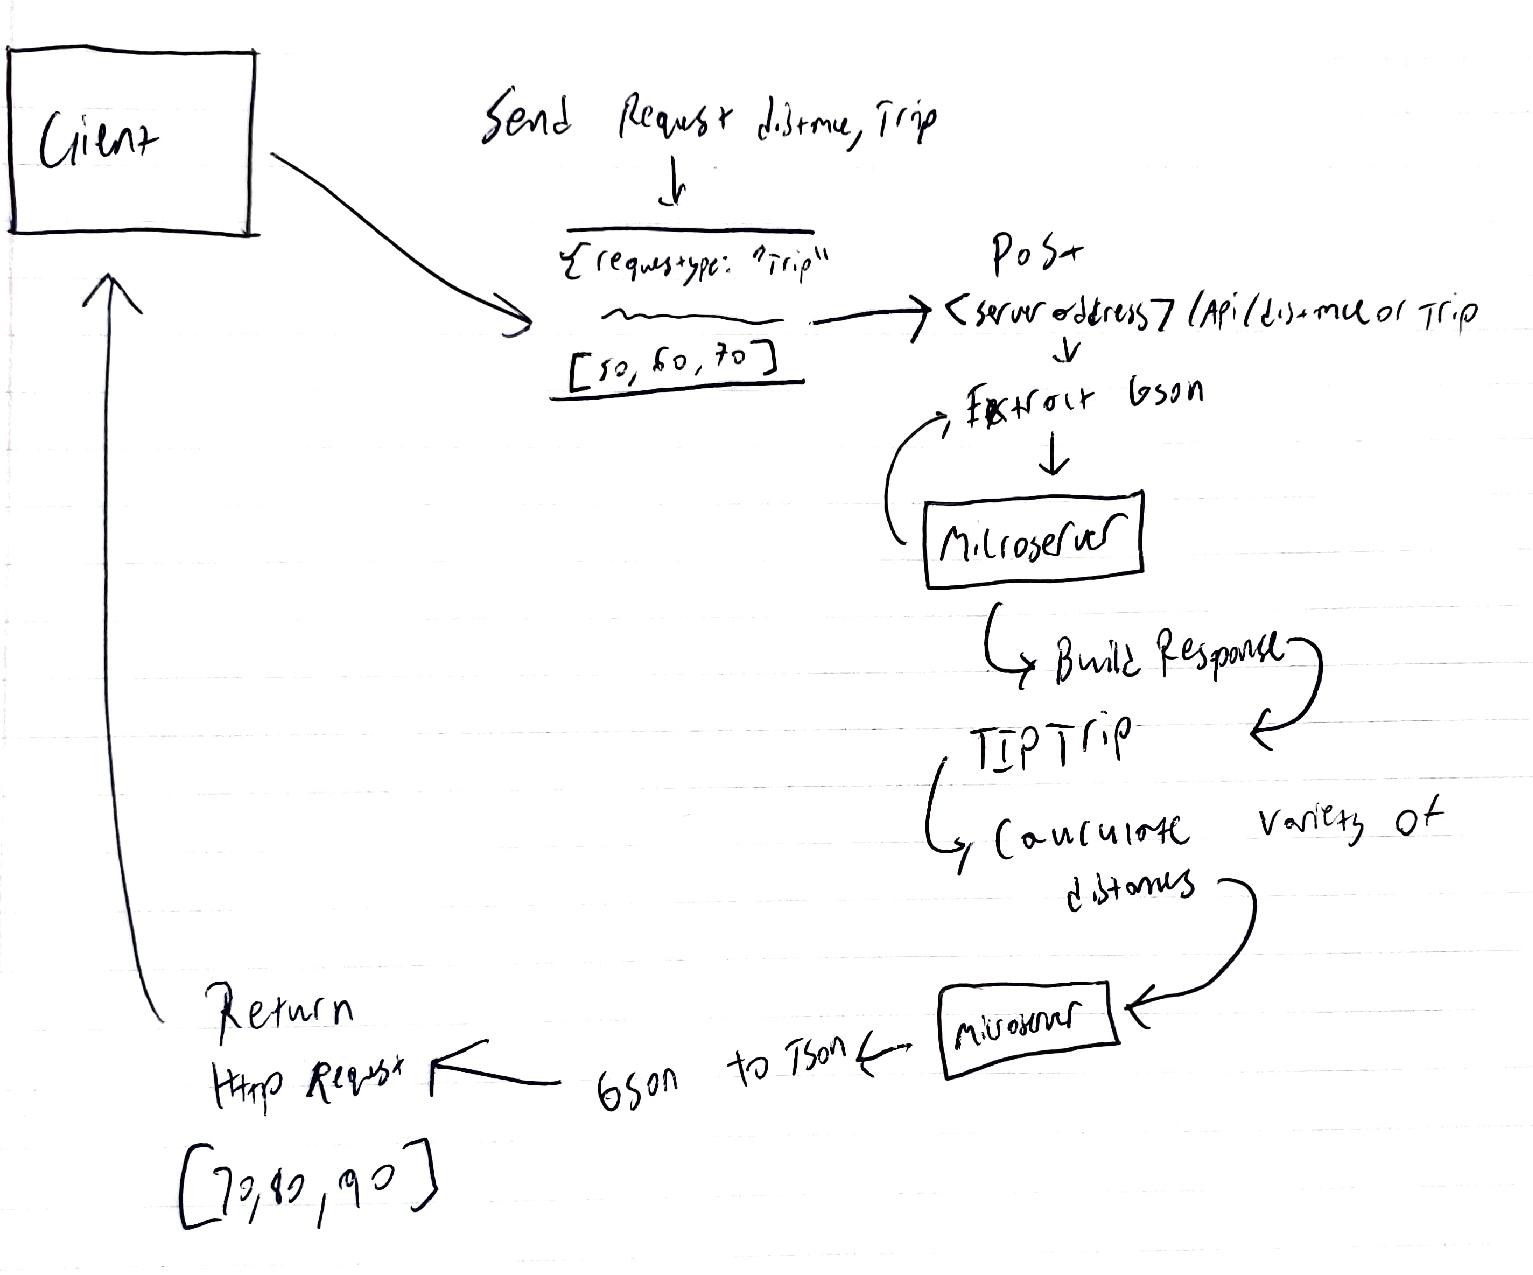 Client
Send Request distance, Trip
{requestype: "Trip"
[50, 60, 70]
Post
<server address>/Api/distance or Trip
Extract Gson
Microserver
Build Response
TIP Trip
Caurulate variety of
distances
Microserver
Gson to Json
Return
Http Request
[70,80,90]